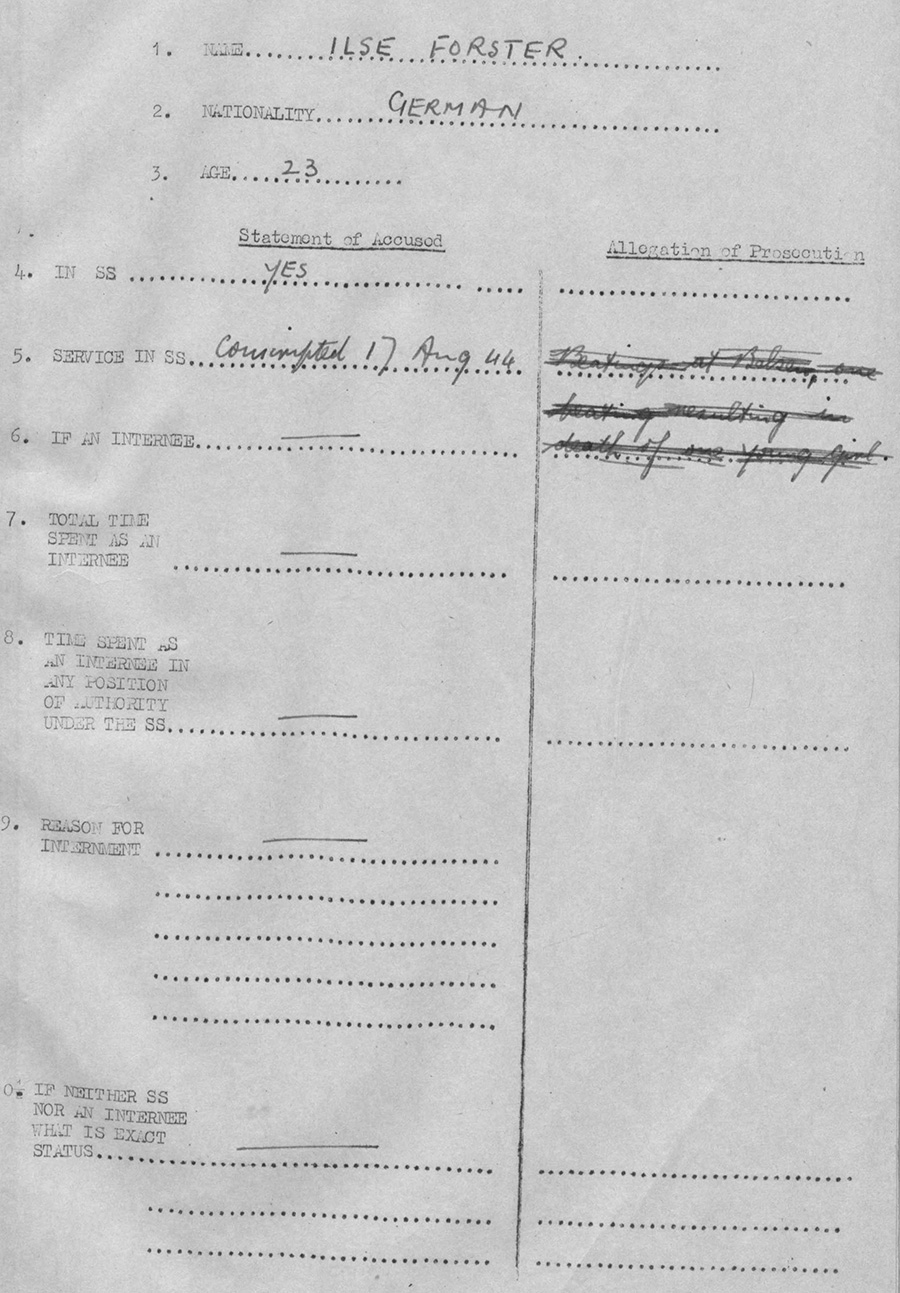 1. NAME..... ILSE FORSTER.
2. NATIONALITY..... GERMAN
3. AGE..... 23
Statement of Accused
Allegation of Prosecution
4. IN SS ..... YES
5. SERVICE IN SS.. Conscripted 17 Aug 44
Beatings at Belsen, one
beating resulting in
death of one young girl.
6. IF AN INTERNEE.....
7. TOTAL TIME
SPENT AS AN
INTERNEE .....
8. TIME SPENT AS
AN INTERNEE IN
ANY POSITION
OF AUTHORITY
UNDER THE SS.....
9. REASON FOR
INTERNMENT .....
0. IF NEITHER SS
NOR AN INTERNEE
WHAT IS EXACT
STATUS.....